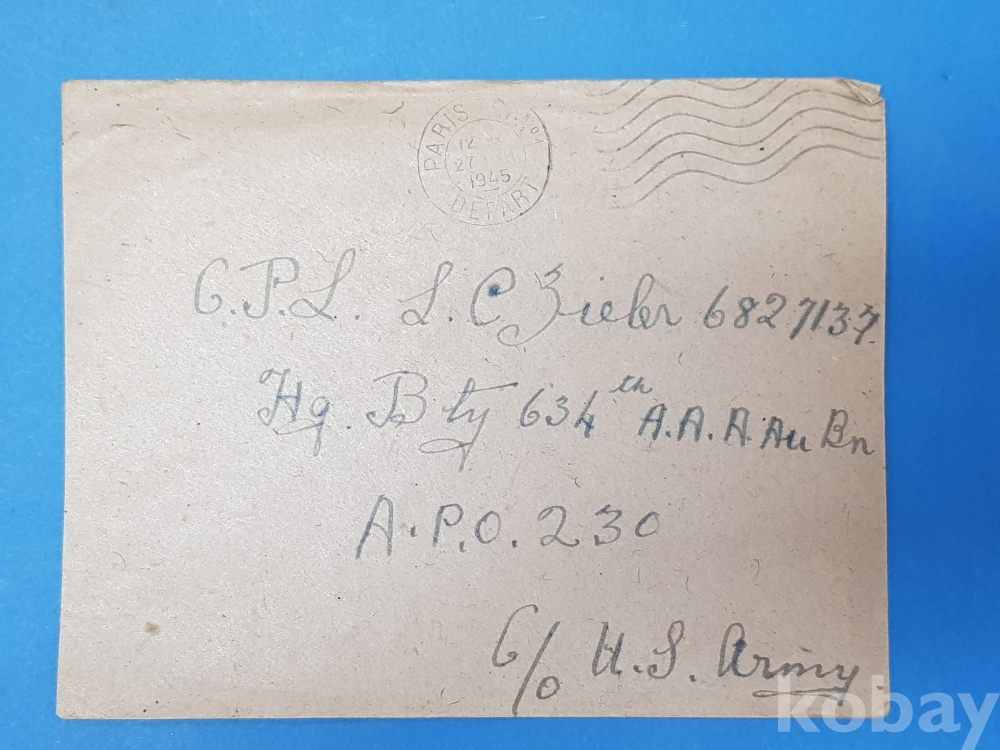 PARIS
12
27
1945
DEPART
C.P.L. L. C Zieler 6827137.
Hq. Bty 634th A.A.A. Au Bn
A.P.O. 230
C/o U.S. Army
kobay